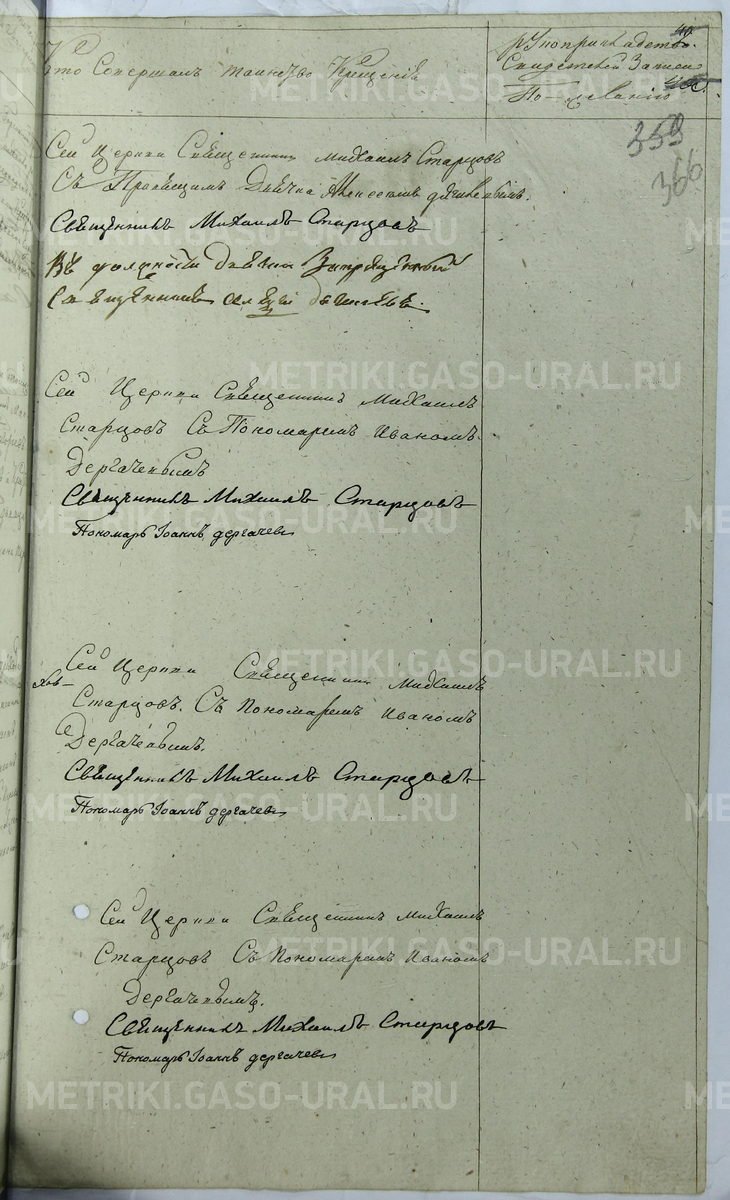 Кто Совершалъ таинство Крещенія
Рукоприкладство
Свидетелей Записи
По желанію
359
366
Сей Церкви Священникъ Михаилъ Старцовъ
Съ
Священникъ Михаилъ Старцовъ
Въ должности Запрещенный
Священникъ
Сей Церкви Священникъ Михаилъ
Старцовъ Съ Пономаремъ Иваномъ
Дергачевымъ
Священникъ Михаилъ Старцовъ
Пономарь Іоаннъ дергачевъ
Сей Церкви Священникъ Михаилъ
Старцовъ. Съ Пономаремъ Иваномъ
Дергачевымъ.
Священникъ Михаилъ Старцовъ
Пономарь Іоаннъ дергачевъ
Сей Церкви Священникъ Михаилъ
Старцовъ Съ Пономаремъ Иваномъ
Дергачевымъ.
Священникъ Михаилъ Старцовъ
Пономарь Іоаннъ дергачевъ
METRIKI.GASO-URAL.RU